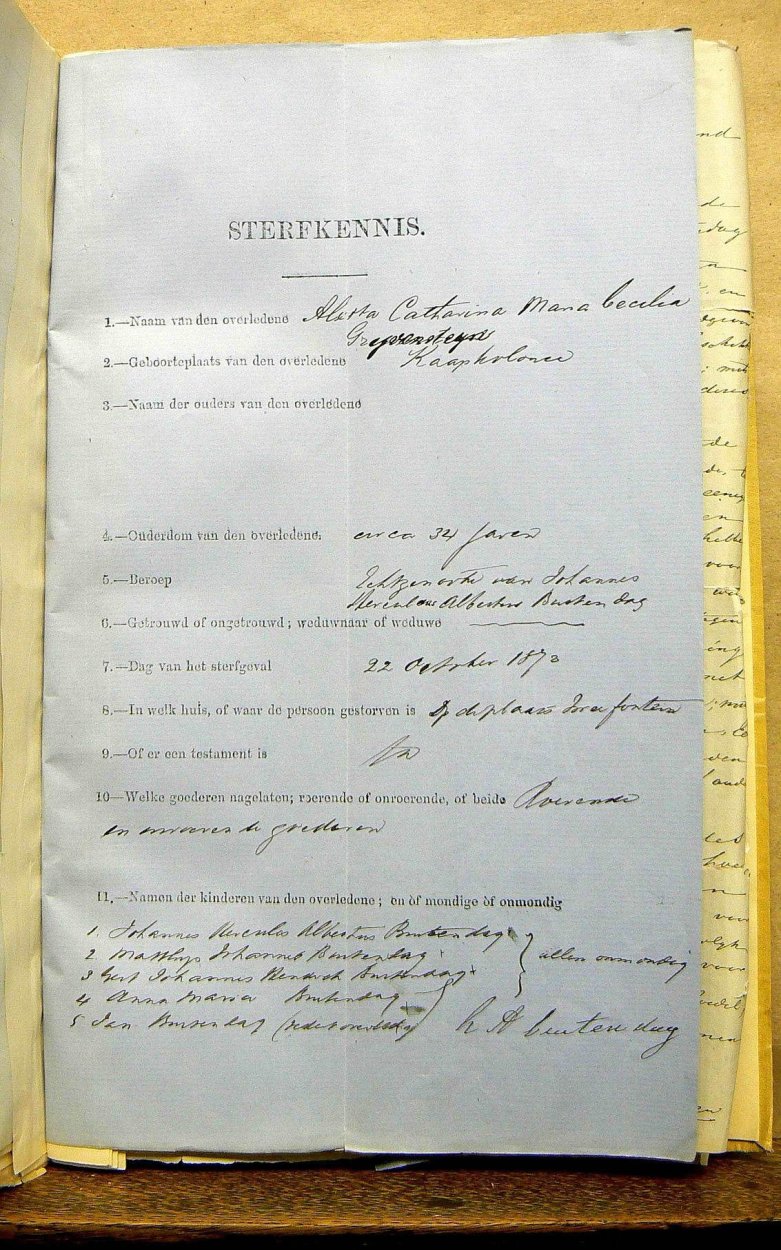 STERFKENNIS.
1.—Naam van den overledene Aletta Catharina Maria Cecilia
Greyvensteyn
2.—Geboorteplaats van den overledene Kaapkolonie
3.—Naam der ouders van den overledene
4.—Ouderdom van den overledene. circa 34 Jaren
5.—Beroep Echtgenoote van Johannes
Hercules Albertus Buitendag
6.—Getrouwd of ongetrouwd; weduwnaar of weduwe
7.—Dag van het sterfgeval 22 October 1873
8.—In welk huis, of waar de persoon gestorven is Op de plaats fontein
9.—Of er een testament is Ja
10—Welke goederen nagelaten; roerende of onroerende, of beide Roerende
en onroerende goederen
11.—Namen der kinderen van den overledene; en òf mondige òf onmondig
1. Johannes Hercules Albertus Buitendag
2 Matthys Johannes Buitendag
allen onmondig
3 Gert Johannes Hendrik Buitendag
4 Anna Maria Buitendag
5 Jan Buitendag
H A buitendag